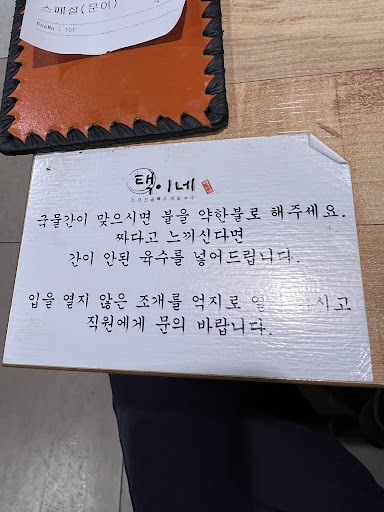 스페셜(문어)
PosNo : 101
택이네
국물간이 맞으시면 불을 약한불로 해주세요.
짜다고 느끼신다면
간이 안된 육수를 넣어드립니다.
입을 열지 않은 조개를 억지로 시고
직원에게 문의 바랍니다.